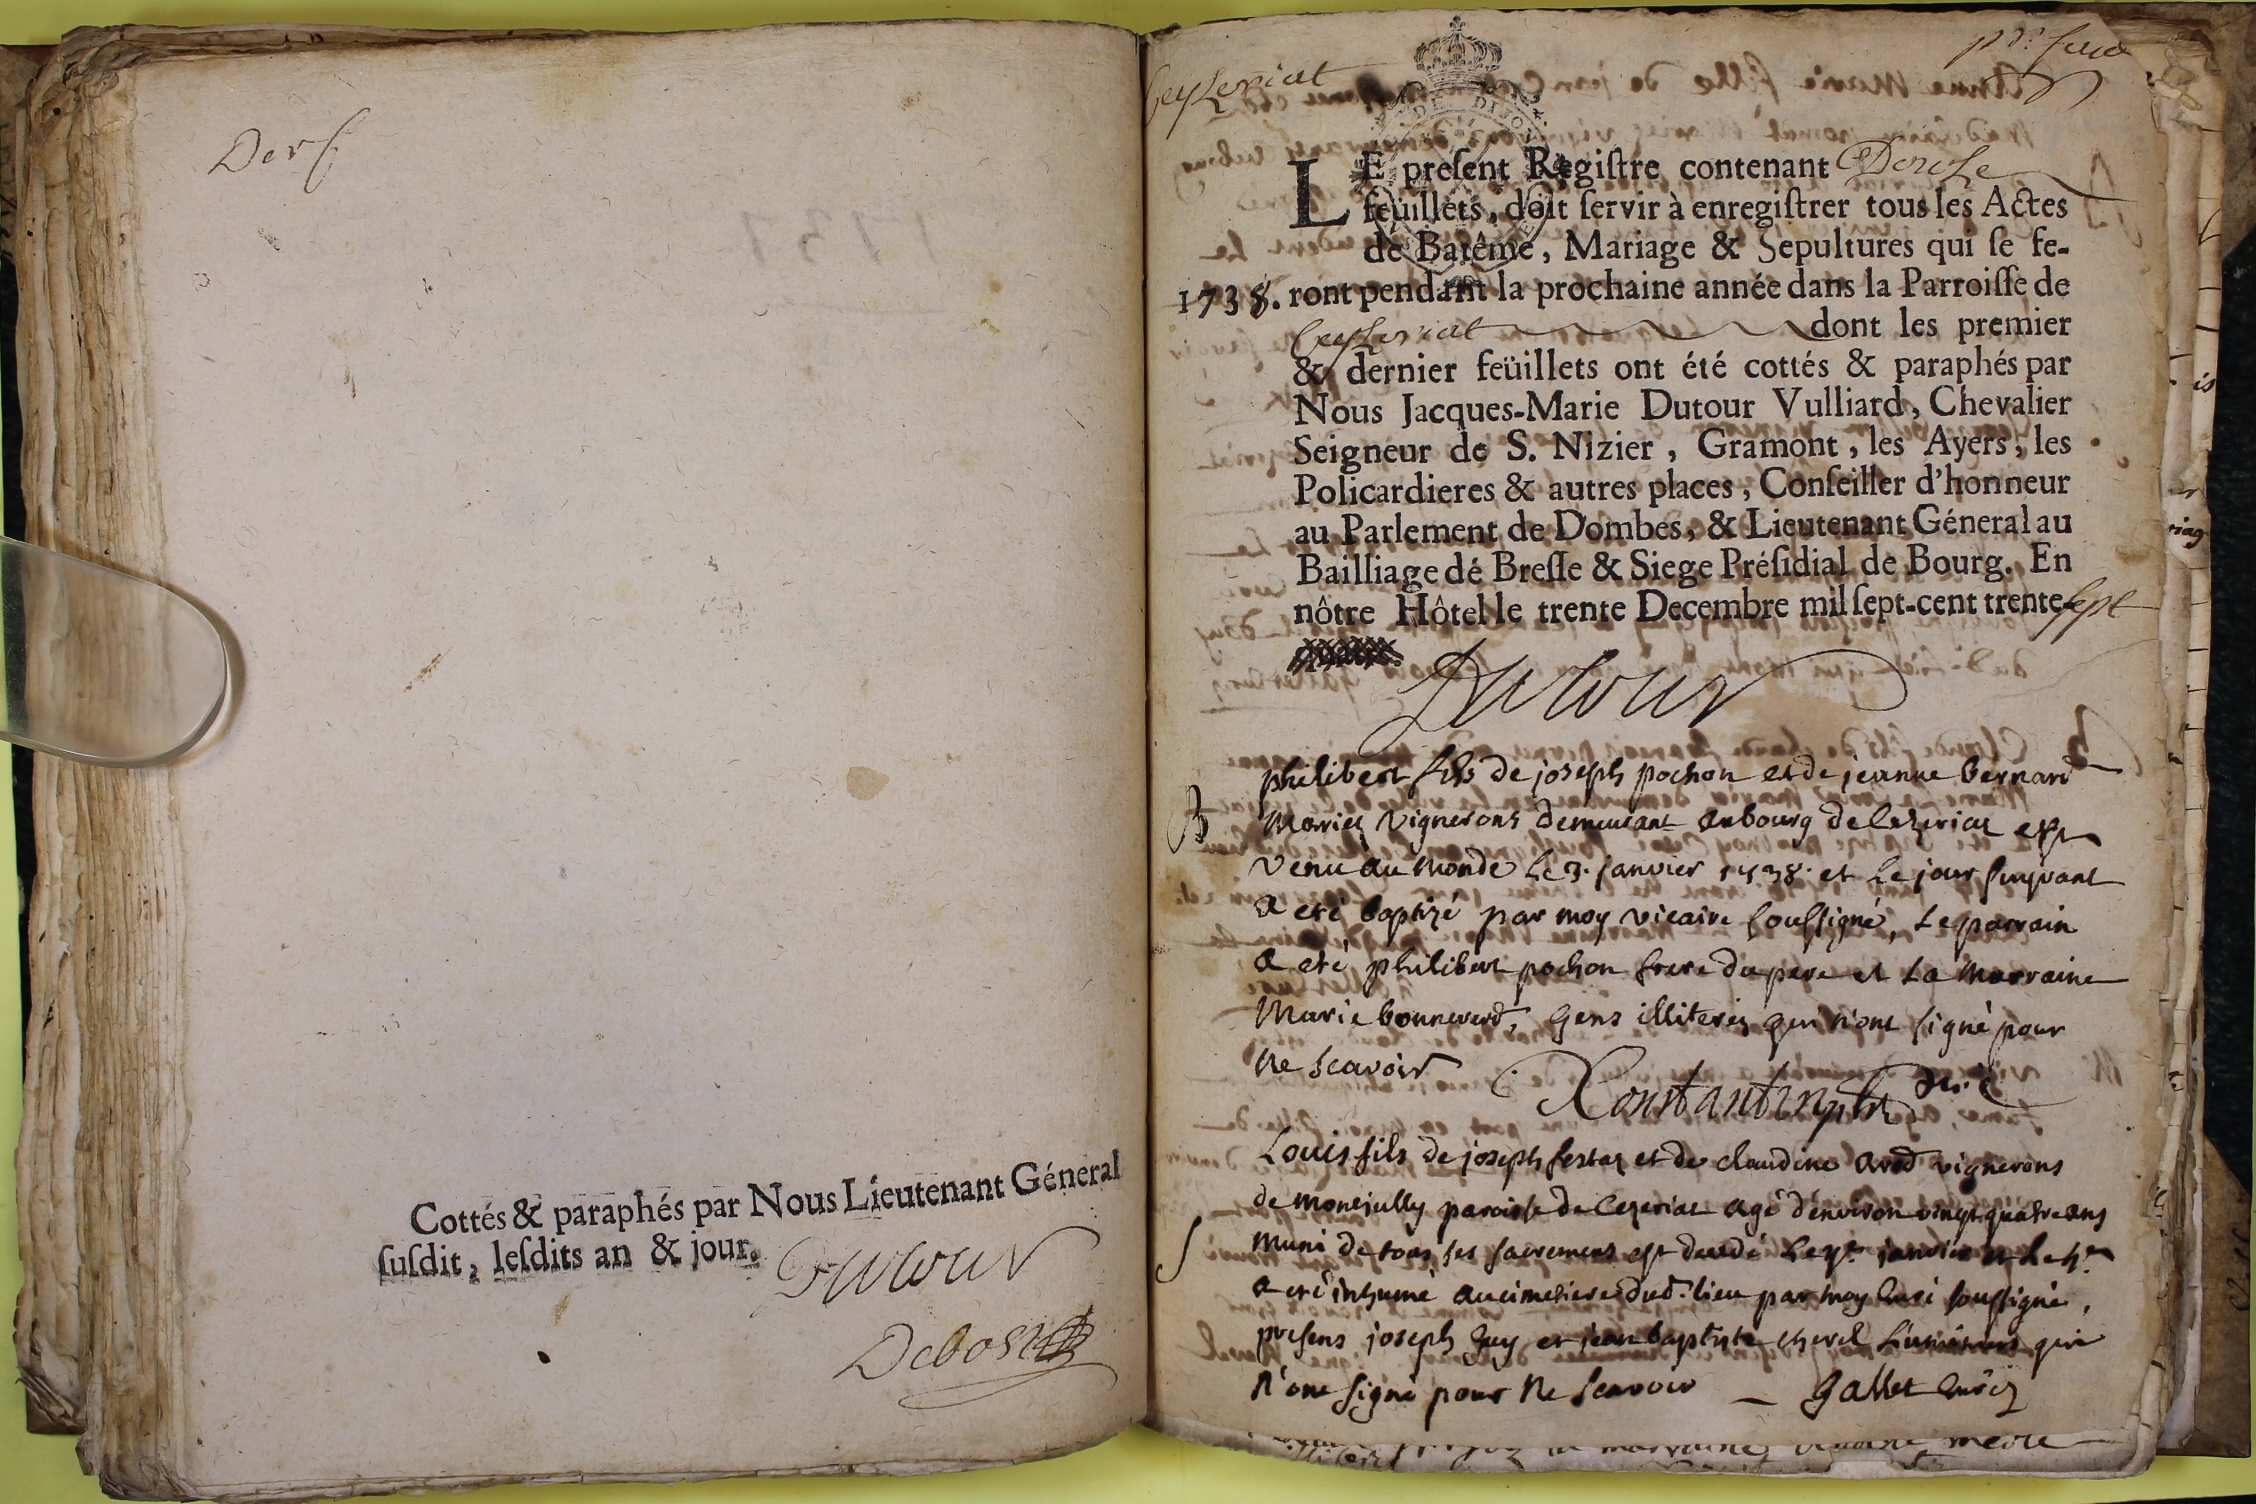 Der f
Cottés & paraphés par Nous Lieutenant Géneral
ſuſdit, leſdits an & jour.
Dutour
Debost
Ceyzeriat
pr. feuil
LE preſent Regiſtre contenant Douze
feüillets, doit ſervir à enregiſtrer tous les Actes
de Batême, Mariage & Sepultures qui ſe fe-
1738. ront pendant la prochaine année dans la Parroiſſe de
Ceyzeriat dont les premier
& dernier feüillets ont été cottés & paraphés par
Nous Jacques-Marie Dutour Vulliard, Chevalier
Seigneur de S. Nizier, Gramont, les Ayers, les
Policardieres & autres places, Conſeiller d'honneur
au Parlement de Dombes, & Lieutenant Géneral au
Bailliage dé Breſſe & Siege Préſidial de Bourg. En
nôtre Hôtel le trente Decembre mil ſept-cent trente-sept
Dutour
philibert fils de joseph pochon et de jeanne bernard
B mariez vignerons demeurant au bourg de Cezeriat est
venu au monde le 3. janvier 1738. et le jour suyvant
a eté baptizé par moy vicaire soussigné, le parrain
a eté philibert pochon frere du pere et la marraine
Marie bonnevard, gens illiterez qui n'ont signé pour
ne scavoir
Constantin pbr vic.
Louis fils de joseph festaz et de claudine arod vignerons
de montjully paroisse de Cezeriat agé d'environ vingt quatre ans
S muni de tous ses sacremens est decedé le janvier et le
a eté inhumé au cimetiere dud. lieu par moy curé soussigné,
presens joseph guy et jean baptiste cherel qui
n'ont signé pour ne scavoir — Gallet curé